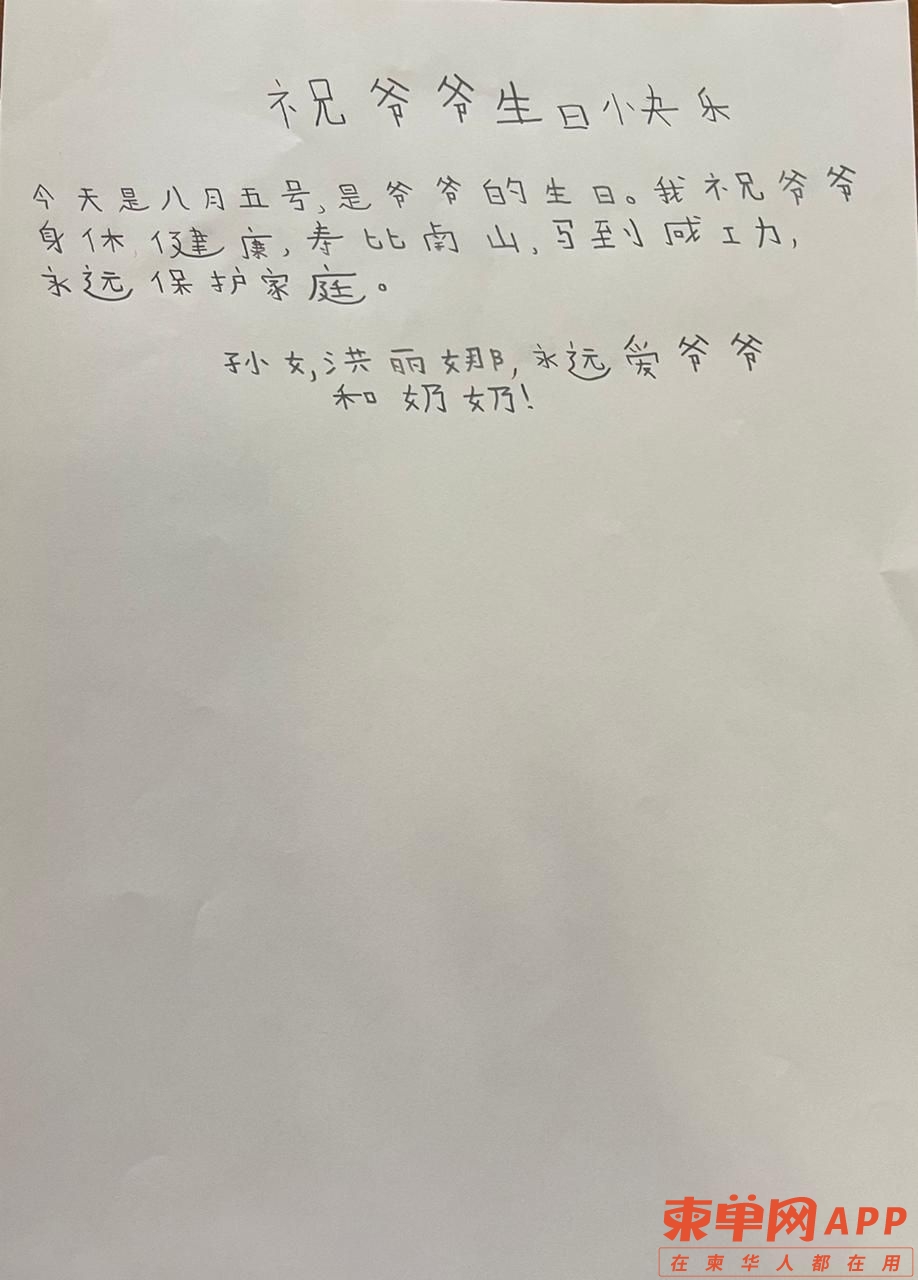 祝爷爷生日快乐
今天是八月五号,是爷爷的生日。我祝爷爷
身体健康,寿比南山,马到成工力,
永远保护家庭。
孙女,洪丽娜,永远爱爷爷
和奶奶!
柬单网APP
在柬华人都在用